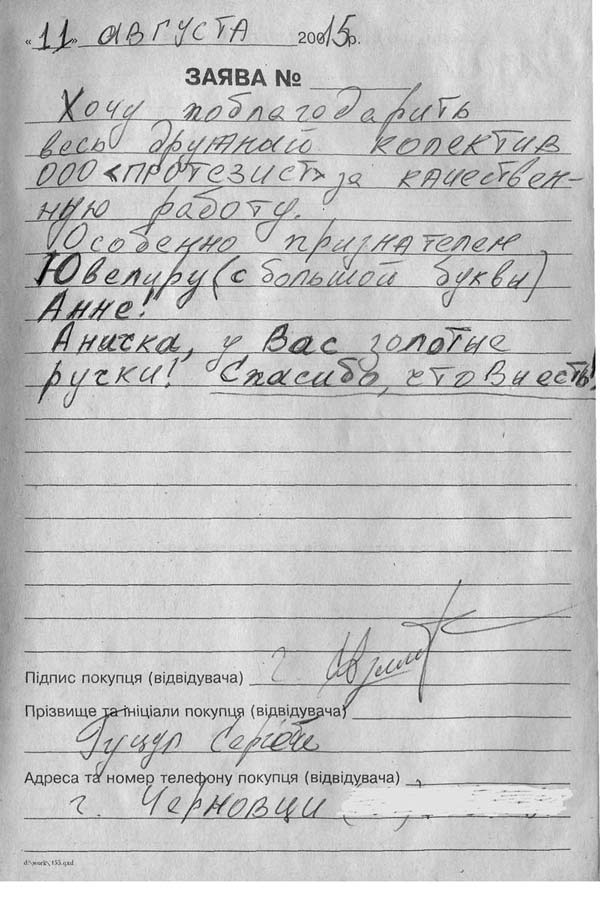 «11» августа 20015р.
ЗАЯВА №
Хочу поблагодарить
весь дружный колектив
ООО «ПРОТЕЗИСТ» за качествен-
ную работу.
Особенно признателен
Ювелиру (с большой буквы)
Анне!
Аничка, у Вас золотые
ручки! Спасибо, что Вы есть!
Підпис покупця (відвідувача) г.
Прізвище та ініціали покупця (відвідувача)
Гуцул
Адреса та номер телефону покупця (відвідувача)
г. Черновци